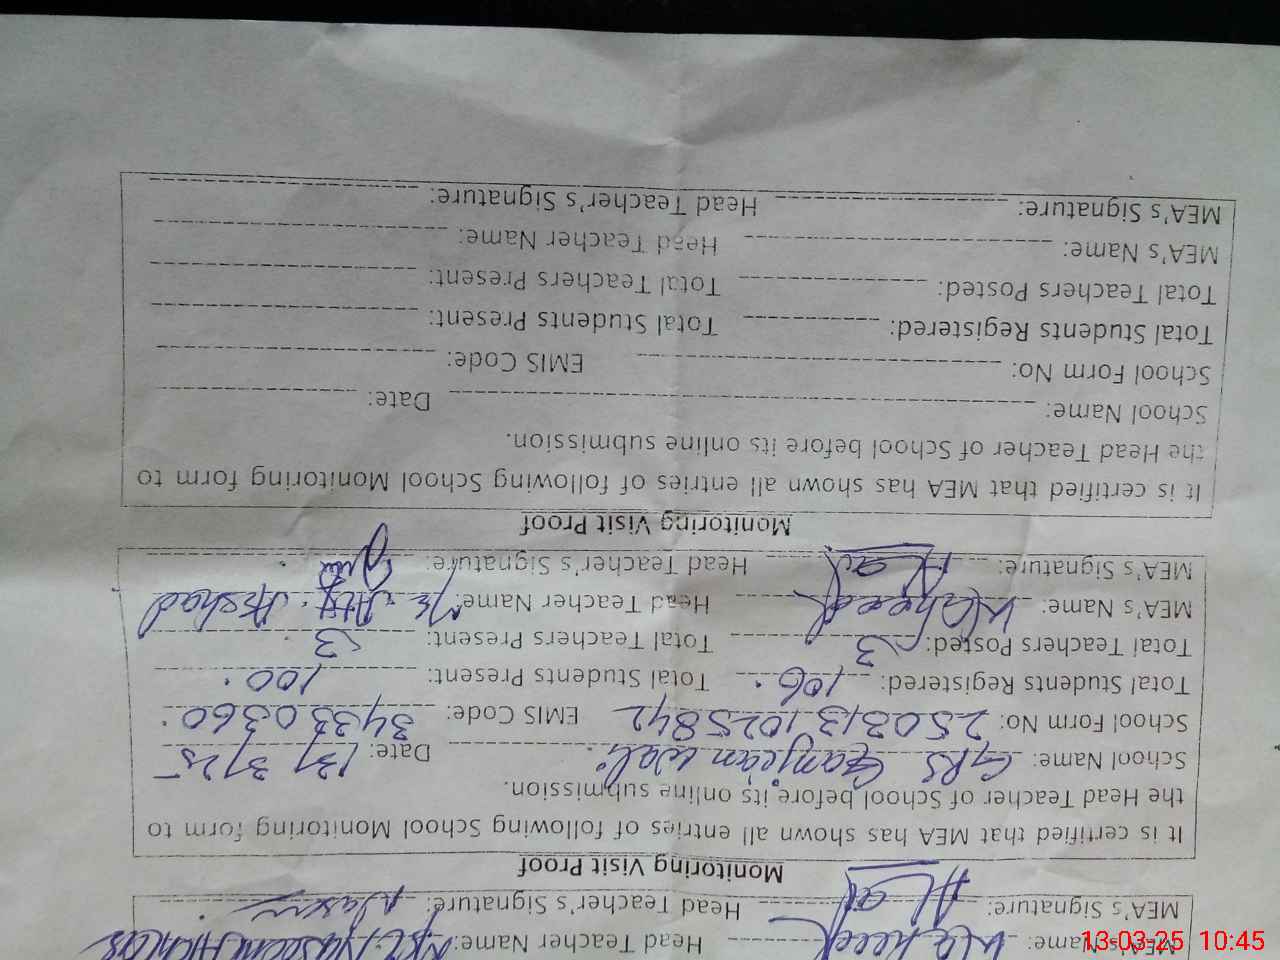 MEA's Name: Waheed Head Teacher Name: Naseem Akhtar
MEA's Signature: Head Teacher's Signature: Naseem
Monitoring Visit Proof
It is certified that MEA has shown all entries of following of School Monitoring form to
the Head Teacher of School before its online submission.
School Name: GPS Ganjean Wali Date: 13/3/25
School Form No: 2503131025842 EMIS Code: 34330360
Total Students Registered: 106 Total Students Present: 100
Total Teachers Posted: 3 Total Teachers Present: 3
MEA's Name: Waheed Head Teacher Name: Arshad
MEA's Signature: Head Teacher's Signature:
Monitoring Visit Proof
It is certified that MEA has shown all entries of following of School Monitoring form to
the Head Teacher of School before its online submission.
School Name: Date:
School Form No: EMIS Code:
Total Students Registered: Total Students Present:
Total Teachers Posted: Total Teachers Present:
MEA's Name: Head Teacher Name:
MEA's Signature: Head Teacher's Signature:
13-03-25 10:45